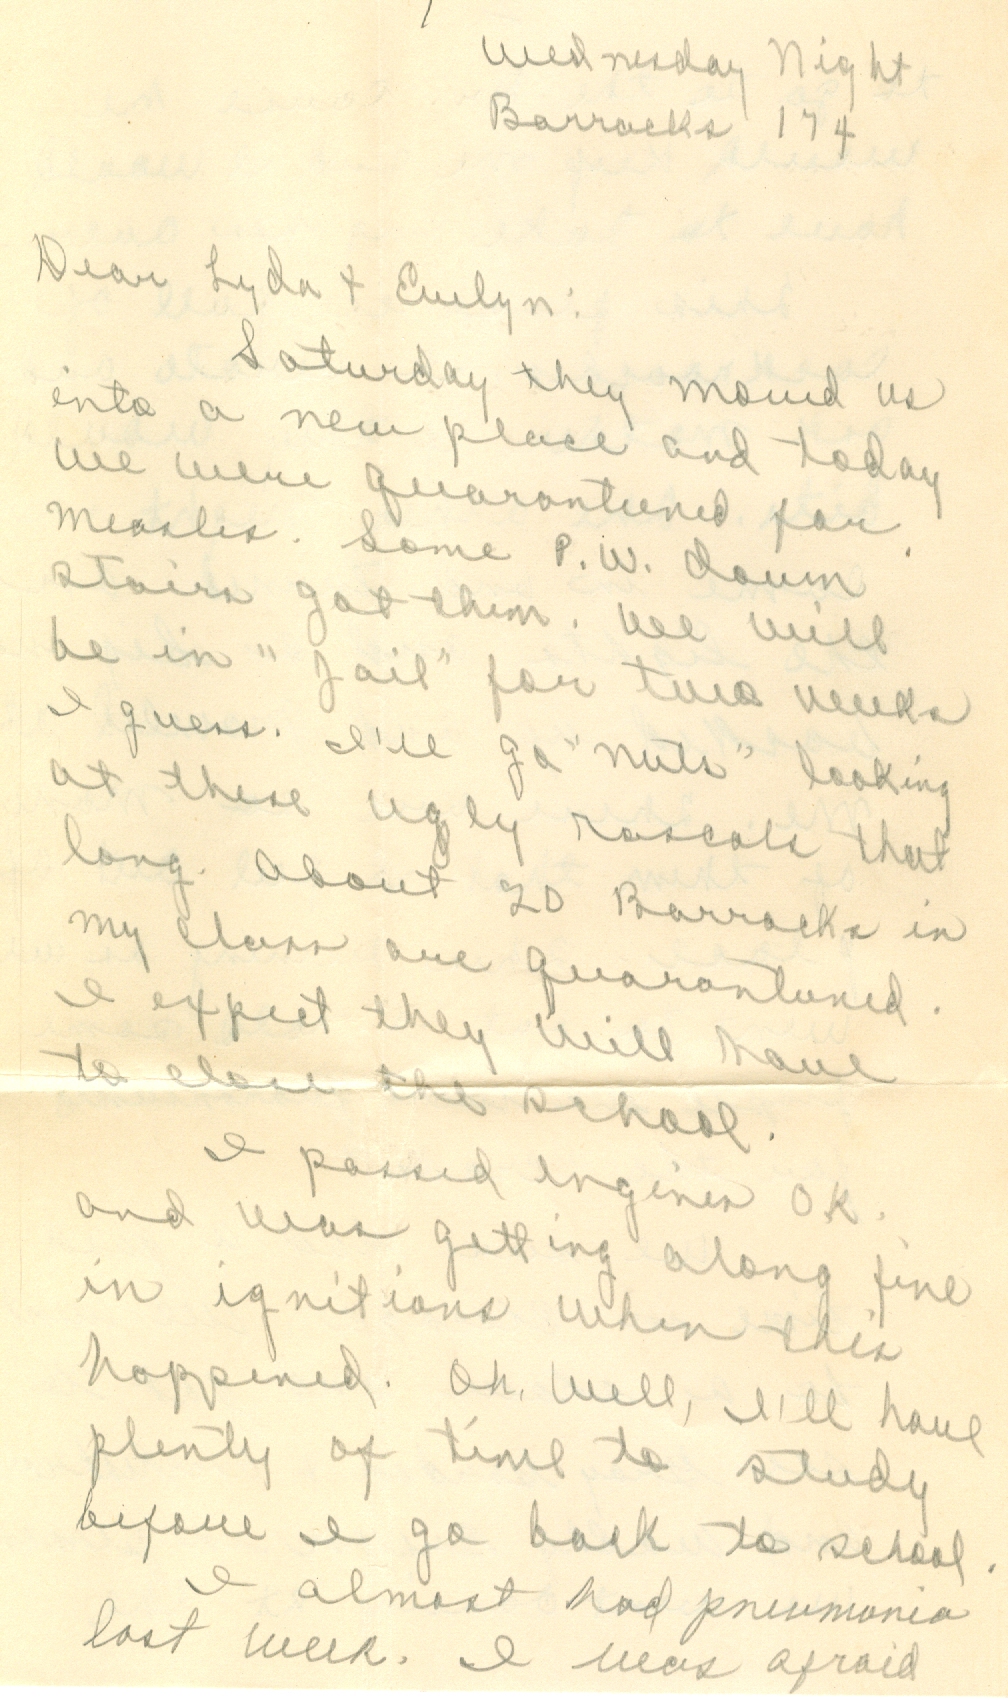 Wednesday Night
Barracks 174
Dear Lyda & Evelyn:
Saturday they moved us
into a new place and today
we were quarantined for
measles. Some P.W. down
stairs got them. We will
be in "jail" for two weeks
I guess. I'll go "nuts" looking
at these ugly rascals that
long. About 20 Barracks in
my class are quarantined.
I expect they will have
to close the school.
I passed engines OK.
and was getting along fine
in ignitions when this
happened. Oh, well, I'll have
plenty of time to study
before I go back to school.
I almost had pneumonia
last week. I was afraid